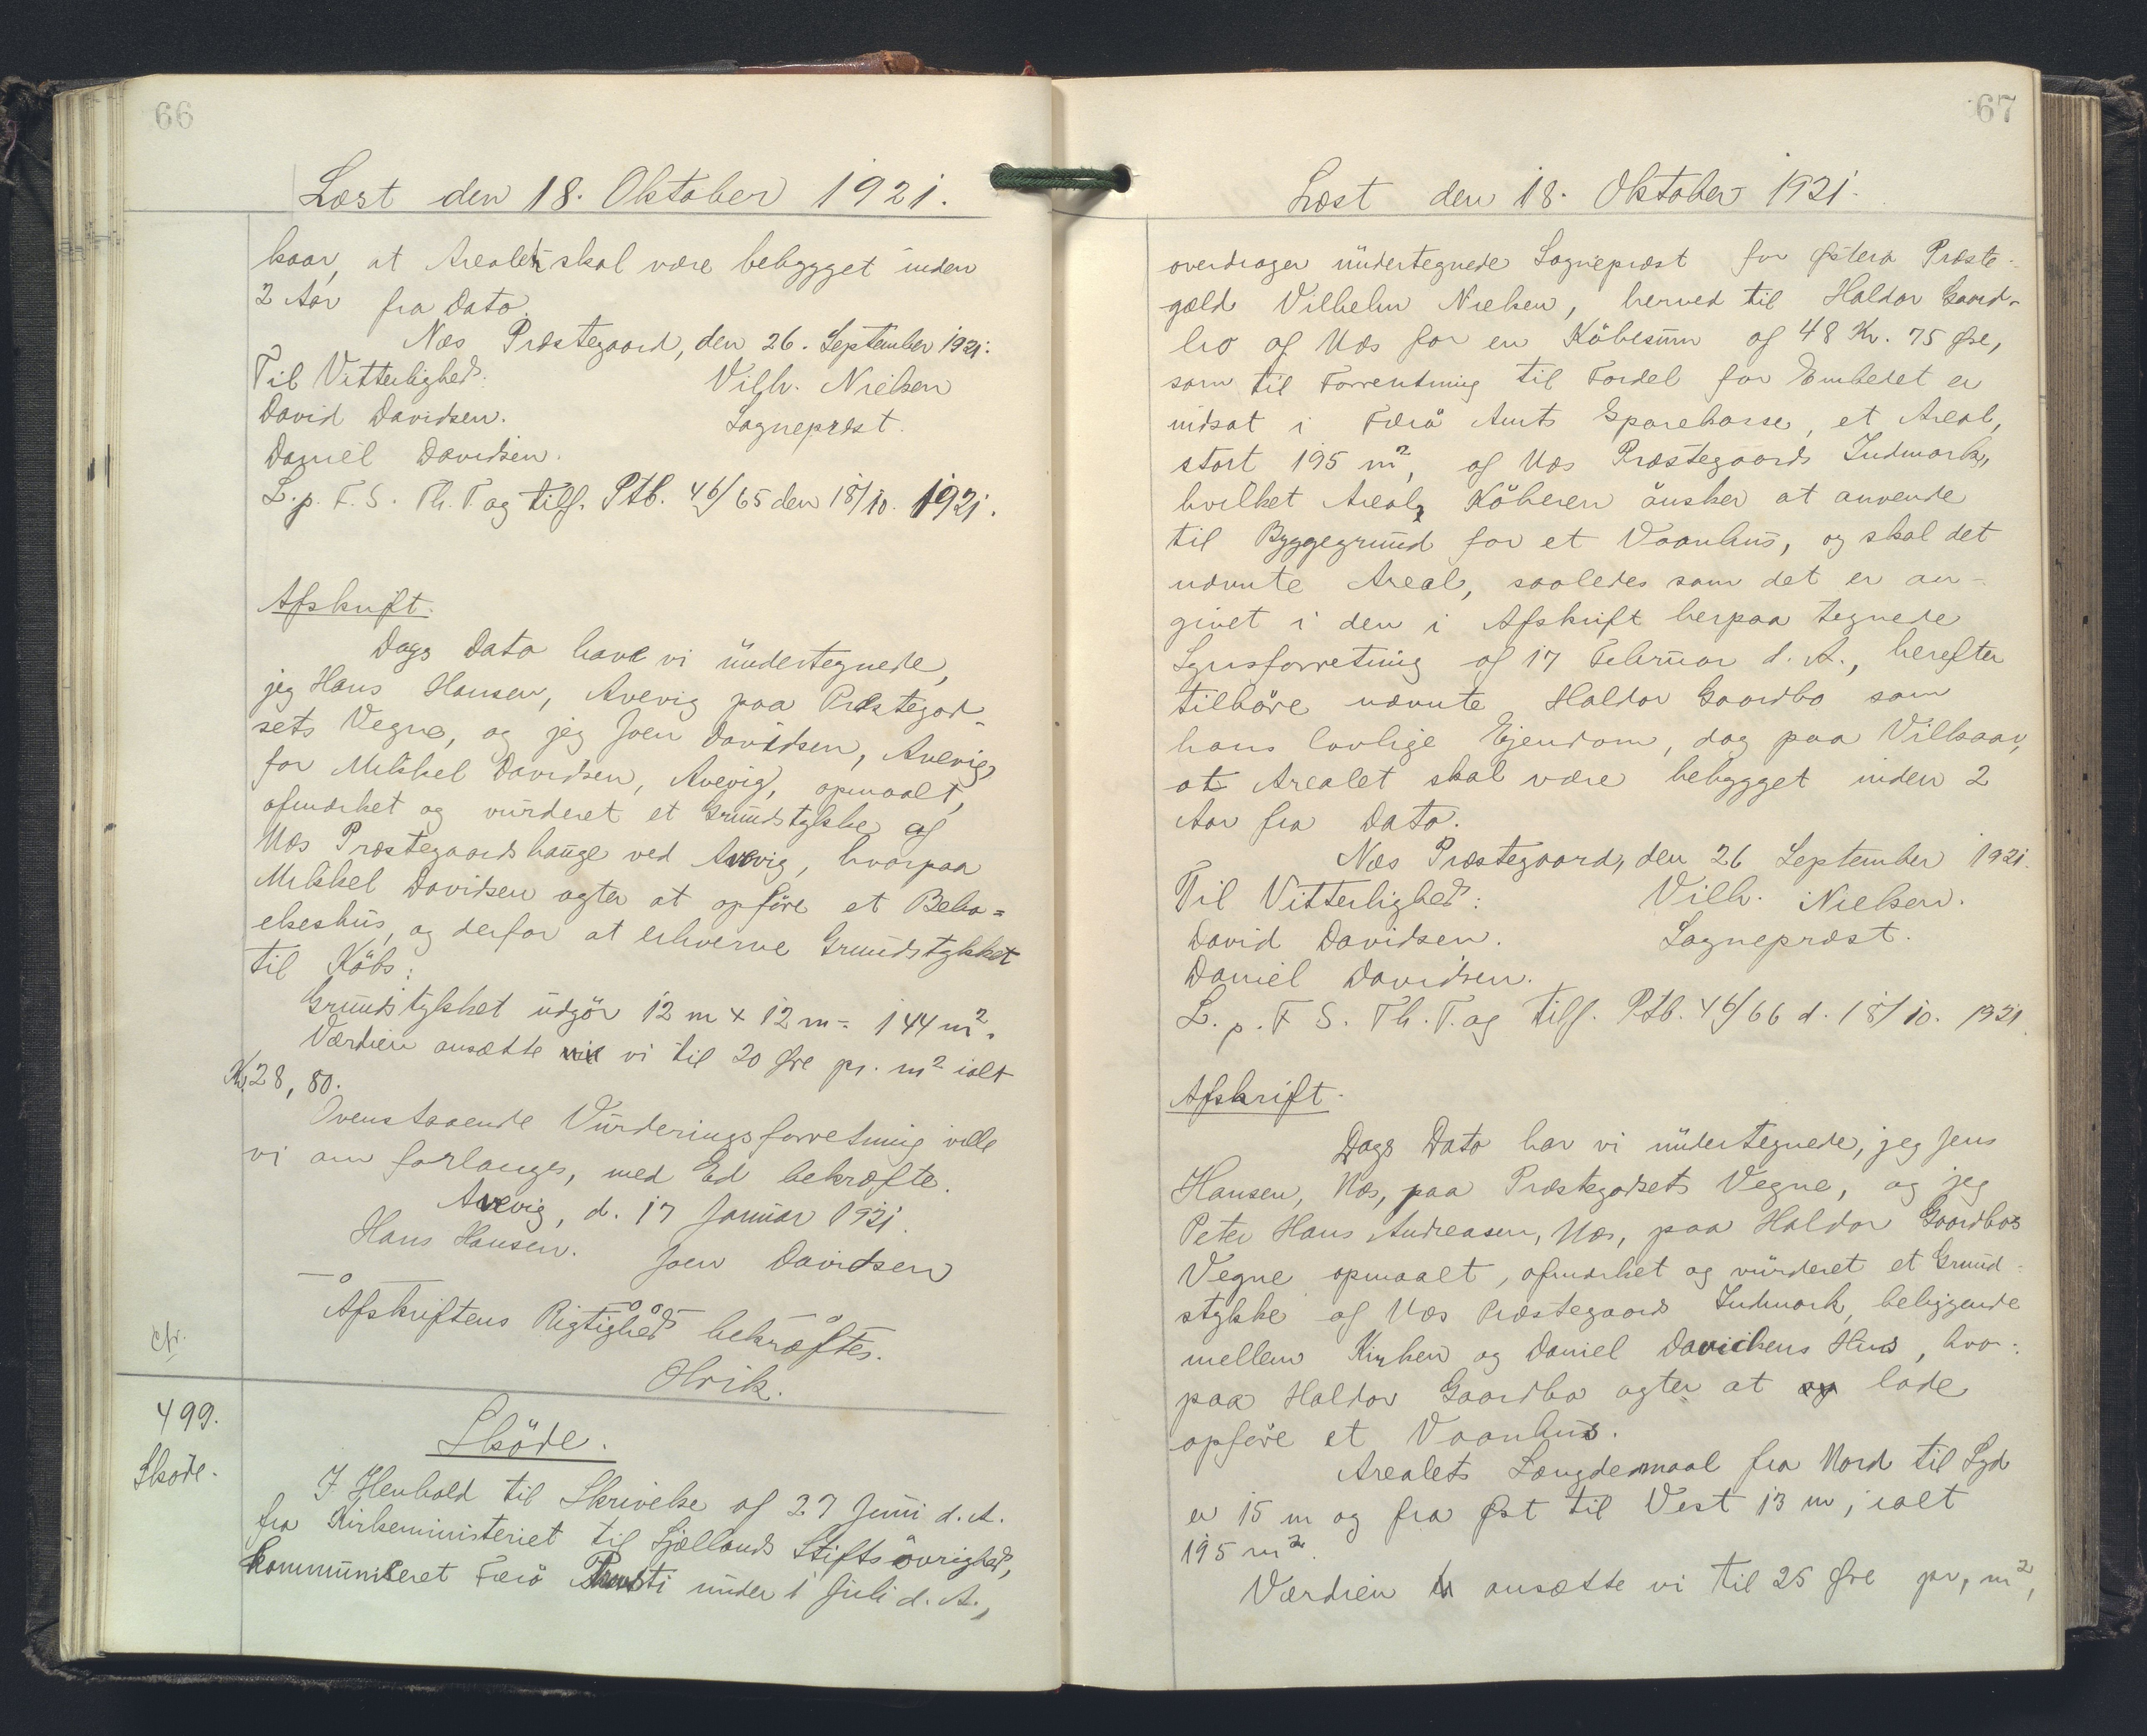 66
Læst den 18. Oktober 1921.
kaar, at Arealet skal være bebygget inden
2 Aar fra Dato.
Næs Præstegaard, den 26. September 1921.
Til Vitterlighed: Vilh. Nielsen
David Davidsen. Sognepræst.
Daniel Davidsen.
L. p. F. S. Th. T. og tilf. Ptb. 46/65 den 18/10. 1921.
Afskrift.
Dags Dato have vi undertegnede,
jeg Hans Hansen, Avevig paa Præstegod-
sets Vegne, og jeg Joen Davidsen, Avevig,
for Mikkel Davidsen, Avevig, opmaalt,
afmærket og vurderet et Grundstykke af
Næs Præstegaards hauge ved Avevig, hvorpaa
Mikkel Davidsen agter at opføre et Bebo=
elseshus, og derfor at erhverve Grundstykket
til Købs:
Grundstykket udgör 12 m x 12 m = 144 m².
Værdien ansætte vi til 20 Øre pr. m² ialt
Kr. 28,80.
Ovenstaaende Vurderingsforretning ville
vi om forlanges, med Ed bekræfte.
Avevig, d. 17 Januar 1921.
Hans Hansen. Joen Davidsen
Afskriftens Rigtighed bekræftes.
cfr.
Olrik.
499.
Skøde.
Sköde.
I Henhold til Skrivelse af 27 Juni d. A.
fra Kirkeministeriet til Sjællands Stiftsövrighed,
kommuniceret Færö Provsti under 1 Juli d. A.,
67
Læst den 18. Oktober 1921.
overdrager undertegnede Sognepræst for Østerø Præste-
gæld Vilhelm Nielsen, herved til Haldor Gaard-
bo af Næs for en Köbesum af 48 Kr. 75 Øre,
som til Forrentning til Fordel for Embedet er
indsat i Færö Amts Sparekasse, et Areal,
stort 195 m², af Næs Præstegaards Indmark,
hvilket Areal, Köberen önsker at anvende
til Byggegrund for et Vaanhus, og skal det
nævnte Areal, saaledes som det er an-
givet i den i Afskrift herpaa tegnede
Synsforretning af 17 Februar d. A., herefter
tilhöre nævnte Haldor Gaardbo som
hans lovlige Ejendom, dog paa Vilkaar,
at Arealet skal være bebygget inden 2
Aar fra Dato.
Næs Præstegaard, den 26 September 1921.
Til Vitterlighed: Vilh. Nielsen.
David Davidsen. Sognepræst.
Daniel Davidsen.
L. p. F. S. Th. T. og tilf. Ptb. 46/66 d. 18/10. 1921.
Afskrift.
Dags Dato har vi undertegnede, jeg Jens
Hansen, Næs, paa Præstegodsets Vegne, og jeg
Peter Hans Andreasen, Næs, paa Haldor Gaardbos
Vegne opmaalt, afmærket og vurderet et Grund-
stykke af Næs Præstegaards Indmark, beliggende
mellem Kirken og Daniel Davidsens Hus, hvor-
paa Haldor Gaardbo agter at lade
opføre et Vaanhus.
Arealets Længdemaal fra Nord til Syd
er 15 m og fra Øst til Vest 13 m, ialt
195 m².
Værdien ansætte vi til 25 Øre pr, m²,